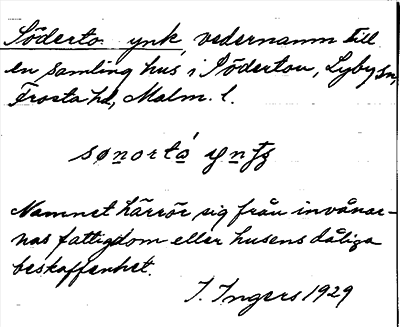 Söderto ynk, vedernamn till
en samling hus i Södertou, Lyby sn,
Frosta hd, Malm. l.
Namnet härrör sig från invånar-
nas fattigdom eller husens dåliga
beskaffenhet.
I. Ingers 1929